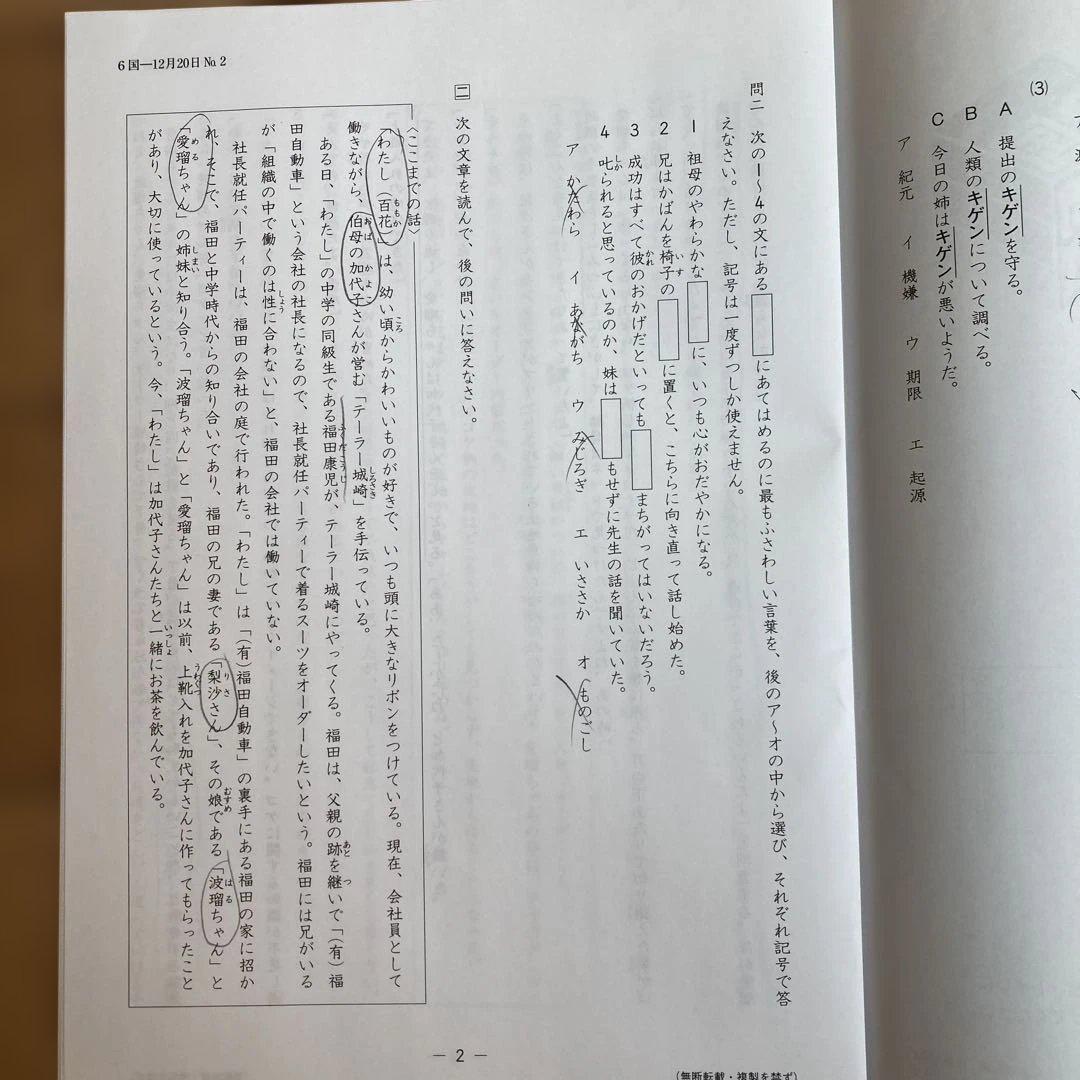 (3)
A 提出のキゲンを守る。
B 人類のキゲンについて調べる。
C 今日の姉はキゲンが悪いようだ。
ア 紀元 イ 機嫌 ウ 期限 エ 起源
6国—12月20日 No.2
問二 次の1〜4の文にある□にあてはめるのに最もふさわしい言葉を、後のア〜オの中から選び、それぞれ記号で答
えなさい。ただし、記号は一度ずつしか使えません。
1 祖母のやわらかな□に、いつも心がおだやかになる。
2 兄はかばんを椅子の□に置くと、こちらに向き直って話し始めた。
3 成功はすべて彼のおかげだといっても□まちがってはいないだろう。
4 叱られると思っているのか、妹は□もせずに先生の話を聞いていた。
ア かたわら イ あながち ウ みじろぎ エ いささか オ ものごし
二 次の文章を読んで、後の問いに答えなさい。
〈ここまでの話〉
「わたし（百花）」は、幼い頃からかわいいものが好きで、いつも頭に大きなリボンをつけている。現在、会社員として
働きながら、伯母の加代子さんが営む「テーラー城崎」を手伝っている。
ある日、「わたし」の中学の同級生である福田康児が、テーラー城崎にやってくる。福田は、父親の跡を継いで「（有）福
田自動車」という会社の社長になるので、社長就任パーティーで着るスーツをオーダーしたいという。福田には兄がいる
が「組織の中で働くのは性に合わない」と、福田の会社では働いていない。
社長就任パーティーは、福田の会社の庭で行われた。「わたし」は「（有）福田自動車」の裏手にある福田の家に招か
れ、そこで、福田と中学時代からの知り合いであり、福田の兄の妻である「梨沙さん」、その娘である「波瑠ちゃん」と
「愛瑠ちゃん」の姉妹と知り合う。「波瑠ちゃん」と「愛瑠ちゃん」は以前、上靴入れを加代子さんに作ってもらったこと
があり、大切に使っているという。今、「わたし」は加代子さんたちと一緒にお茶を飲んでいる。
— 2 —
（無断転載・複製を禁ず）